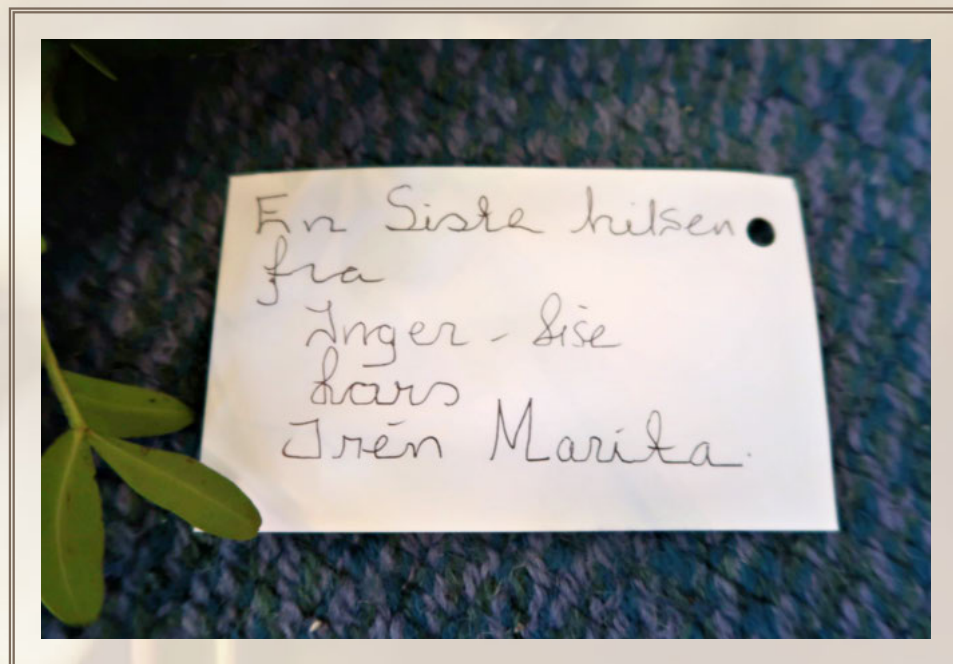 En Siste hilsen
fra
Inger-Lise
Lars
Irén Marita.